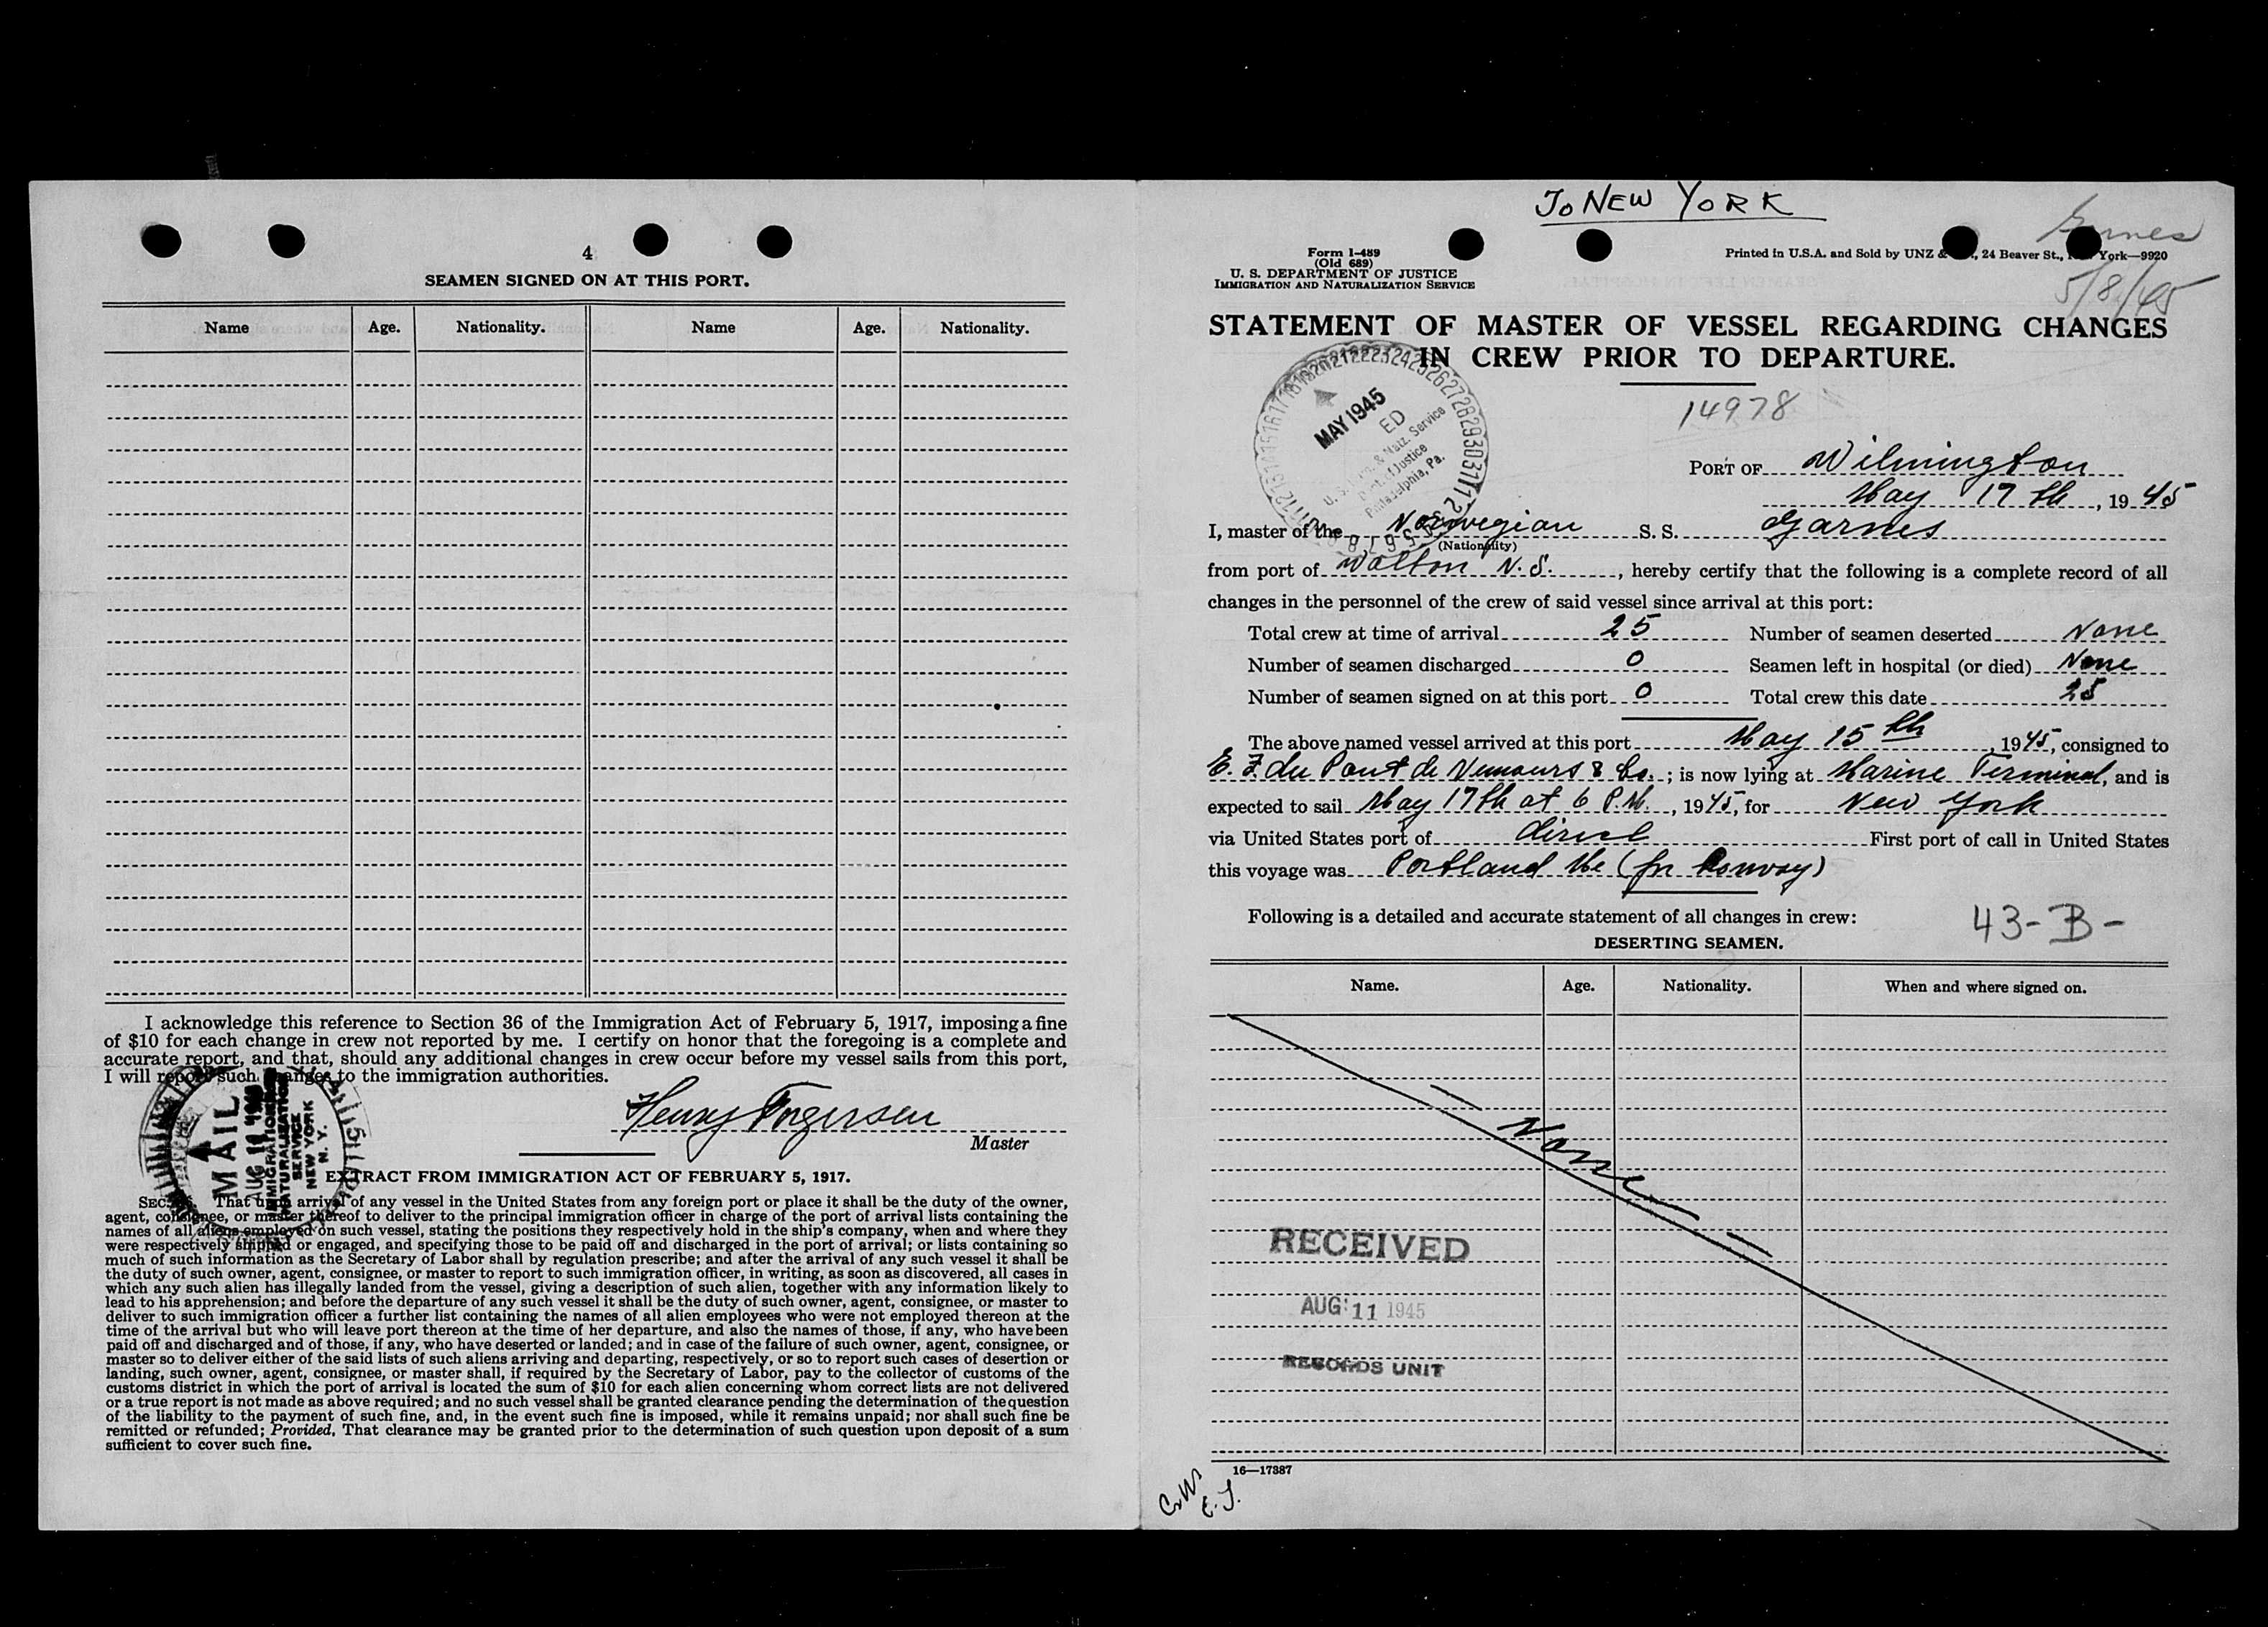 4
SEAMEN SIGNED ON AT THIS PORT.
Name Age. Nationality. Name Age. Nationality.
I acknowledge this reference to Section 36 of the Immigration Act of February 5, 1917, imposing a fine
of $10 for each change in crew not reported by me. I certify on honor that the foregoing is a complete and
accurate report, and that, should any additional changes in crew occur before my vessel sails from this port,
I will report such changes to the immigration authorities.
Henry Torgersen
Master
MAIL
AUG 11 1945
IMMIGRATION &
NATURALIZATION
SERVICE
NEW YORK
N. Y.
EXTRACT FROM IMMIGRATION ACT OF FEBRUARY 5, 1917.
SEC. That upon arrival of any vessel in the United States from any foreign port or place it shall be the duty of the owner,
agent, consignee, or master thereof to deliver to the principal immigration officer in charge of the port of arrival lists containing the
names of all aliens employed on such vessel, stating the positions they respectively hold in the ship's company, when and where they
were respectively shipped or engaged, and specifying those to be paid off and discharged in the port of arrival; or lists containing so
much of such information as the Secretary of Labor shall by regulation prescribe; and after the arrival of any such vessel it shall be
the duty of such owner, agent, consignee, or master to report to such immigration officer, in writing, as soon as discovered, all cases in
which any such alien has illegally landed from the vessel, giving a description of such alien, together with any information likely to
lead to his apprehension; and before the departure of any such vessel it shall be the duty of such owner, agent, consignee, or master to
deliver to such immigration officer a further list containing the names of all alien employees who were not employed thereon at the
time of the arrival but who will leave port thereon at the time of her departure, and also the names of those, if any, who have been
paid off and discharged and of those, if any, who have deserted or landed; and in case of the failure of such owner, agent, consignee, or
master so to deliver either of the said lists of such aliens arriving and departing, respectively, or so to report such cases of desertion or
landing, such owner, agent, consignee, or master shall, if required by the Secretary of Labor, pay to the collector of customs of the
customs district in which the port of arrival is located the sum of $10 for each alien concerning whom correct lists are not delivered
or a true report is not made as above required; and no such vessel shall be granted clearance pending the determination of the question
of the liability to the payment of such fine, and, in the event such fine is imposed, while it remains unpaid; nor shall such fine be
remitted or refunded; Provided, That clearance may be granted prior to the determination of such question upon deposit of a sum
sufficient to cover such fine.
To NEW YORK
Garnes
5/8/45
Form I-489
(Old 689)
U. S. DEPARTMENT OF JUSTICE
IMMIGRATION AND NATURALIZATION SERVICE
Printed in U.S.A. and Sold by UNZ & , 24 Beaver St., New York—9920
STATEMENT OF MASTER OF VESSEL REGARDING CHANGES
IN CREW PRIOR TO DEPARTURE.
14978
MAY 1945
ED
U. S. Imm. & Natz. Service
Dept. of Justice
Philadelphia, Pa.
PORT OF Wilmington
May 17th, 1945
I, master of the Norwegian S. S. Garnes
(Nationality)
from port of Walton N.S. , hereby certify that the following is a complete record of all
changes in the personnel of the crew of said vessel since arrival at this port:
Total crew at time of arrival 25 Number of seamen deserted None
Number of seamen discharged 0 Seamen left in hospital (or died) None
Number of seamen signed on at this port 0 Total crew this date 25
The above named vessel arrived at this port May 15th, 1945, consigned to
E. I. du Pont de Nemours & Co. ; is now lying at Marine Terminal, and is
expected to sail May 17th at 6 P.M. , 1945, for New York
via United States port of direct First port of call in United States
this voyage was Portland Me (for Convoy)
Following is a detailed and accurate statement of all changes in crew:
43-B-
DESERTING SEAMEN.
Name. Age. Nationality. When and where signed on.
None
RECEIVED
AUG 11 1945
RECORDS UNIT
16—17387